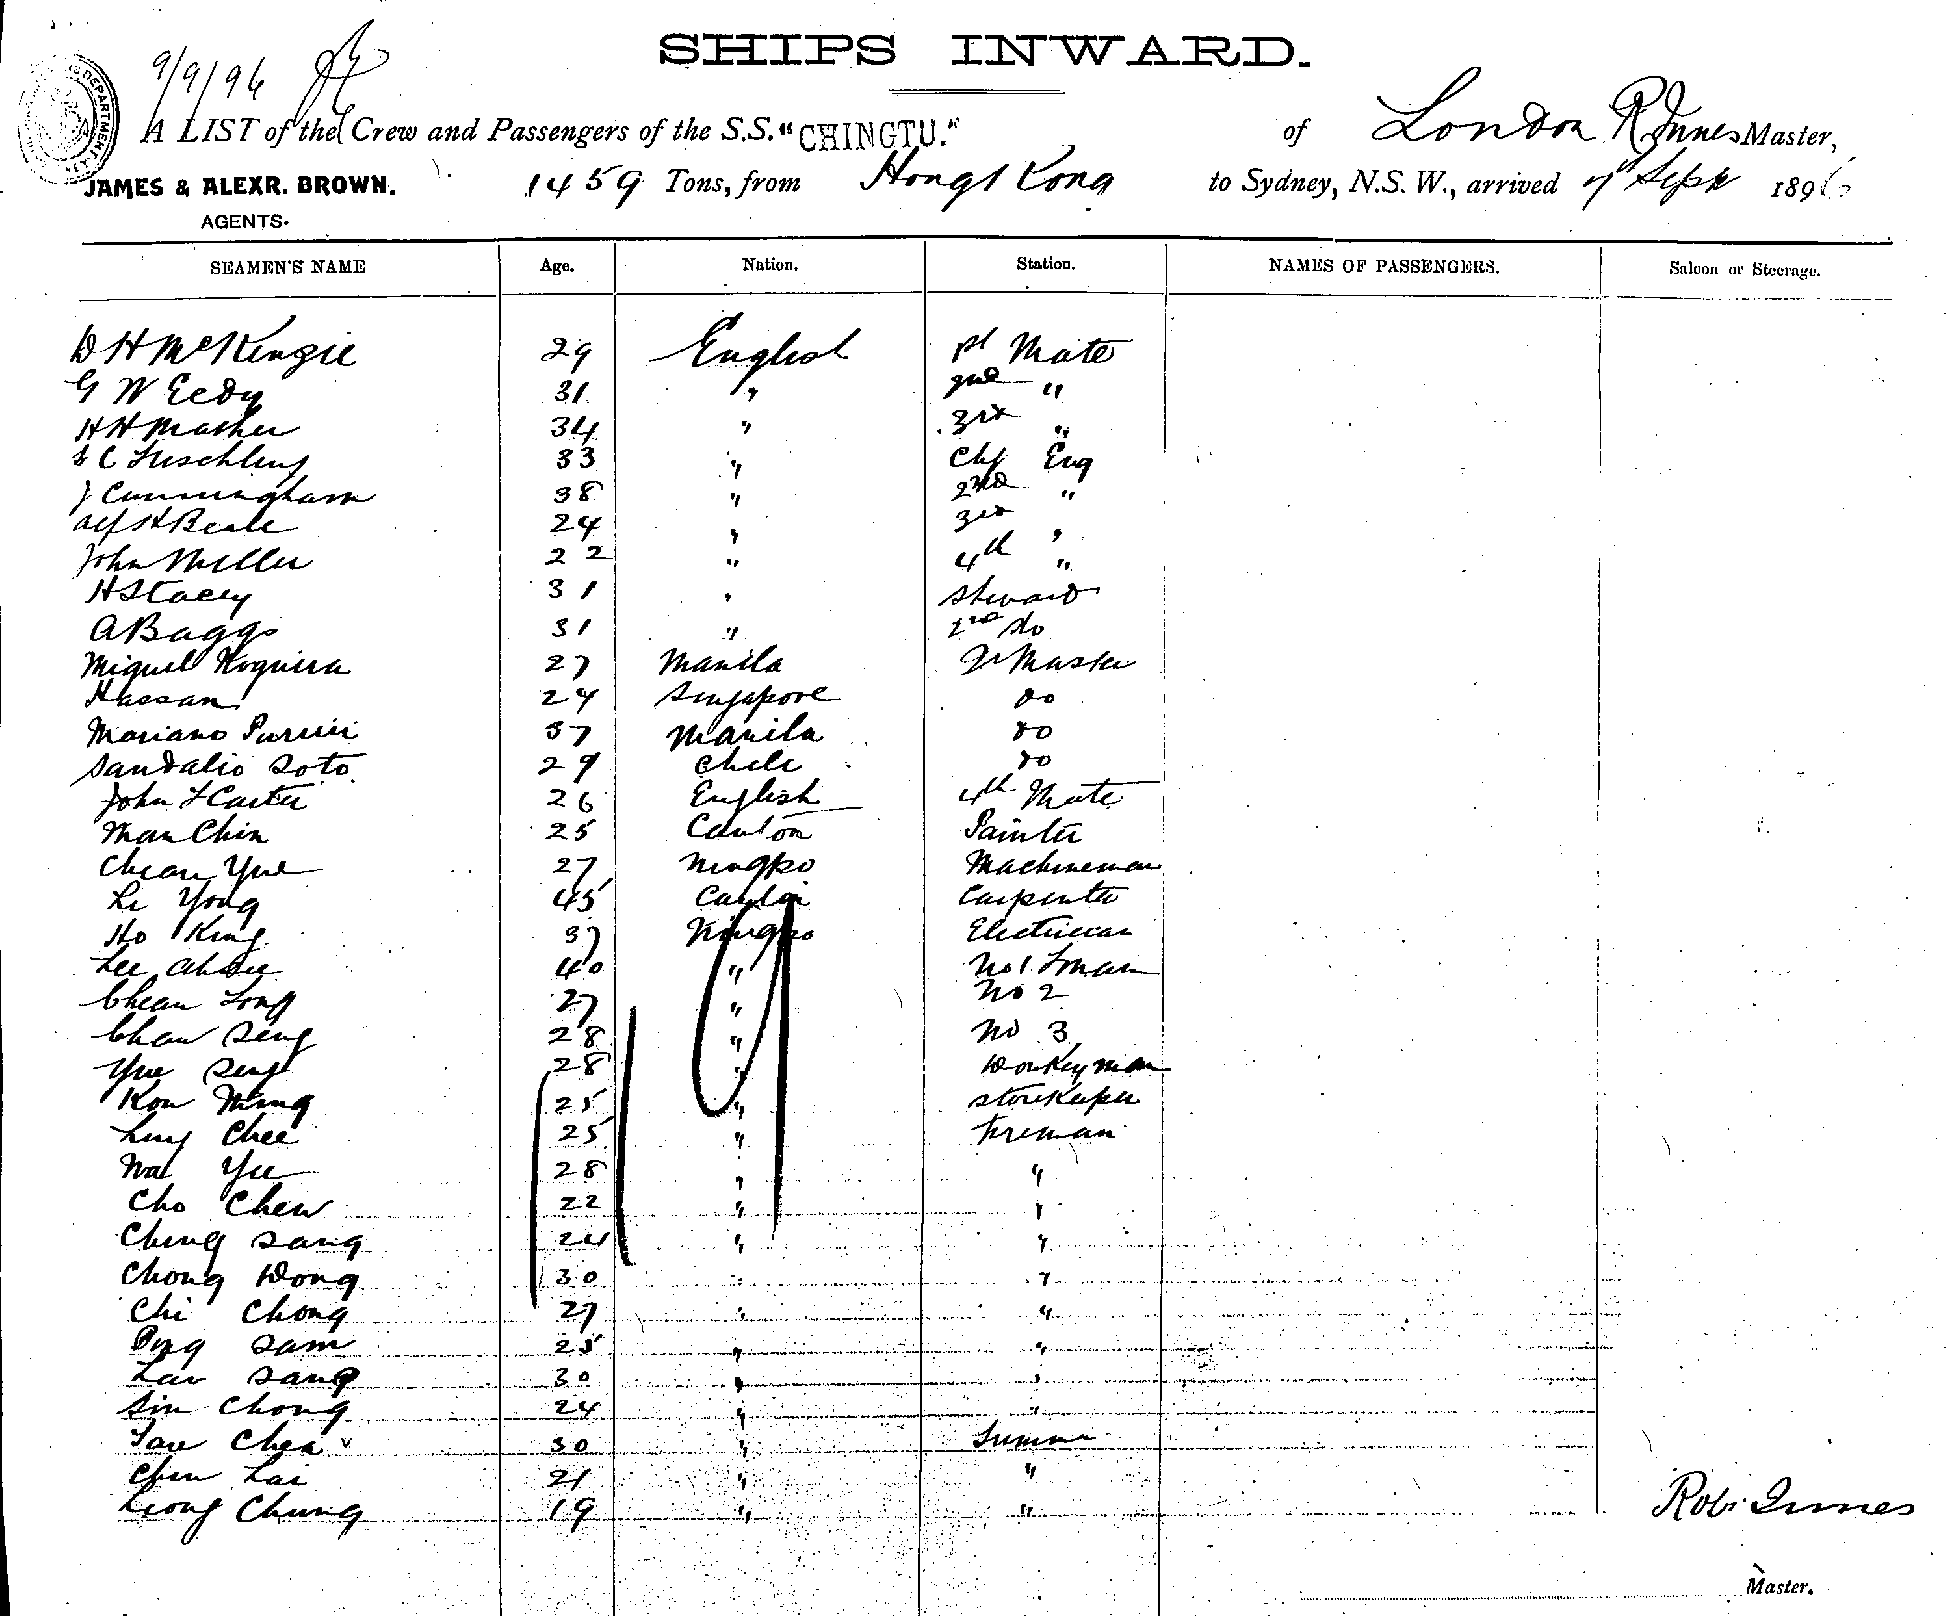 SHIPS INWARD.
9/9/96
A LIST of the Crew and Passengers of the S.S. "CHINGTU." of London R Innes Master,
JAMES & ALEXR. BROWN. 1459 Tons, from Hong Kong to Sydney, N.S.W., arrived Sept 1896
AGENTS.
SEAMEN'S NAME Age. Nation. Station. NAMES OF PASSENGERS. Saloon or Steerage.
D H McKenzie 29 English 1st Mate
G W Eedy 31 " 2nd "
H H Mather 34 " 3rd "
C 33 " Chf Eng
J Cunningham 38 " 2nd "
Alf H Beale 24 " 3rd "
John Miller 22 " 4th "
H Stacey 31 " Steward
A Baggs 31 " 2nd do
Miguel Noguira 27 Manila Qr Master
Hassan 24 Singapore do
Mariano 37 Manila do
Sandalio Soto 29 Chili do
John F Carter 26 English 4th Mate
Man Chin 25 Canton Painter
Chean Yue 27 Ningpo Machineman
Li Yong 45 Canton Carpenter
Ho King 37 Ningpo Electrician
Lee 40 " No 1 Fman
Chean Long 27 " No 2
Chan Seng 28 " No 3
Yue Seng 28 " Donkeyman
Kou Ming 25 " Storekeeper
Ling Chee 25 " Fireman
Wa Yee 28 " "
Cho Chew 22 " "
Ching Sang 24 " "
Chong Wong 30 " "
Chi Chong 27 " "
Sam 25 " "
Lau Sang 30 " "
Sin Chong 24 " "
Chea 30 " Trimmer
Chin Lai 21 " "
Leong Chung 19 " "
Robt Innes
Master.